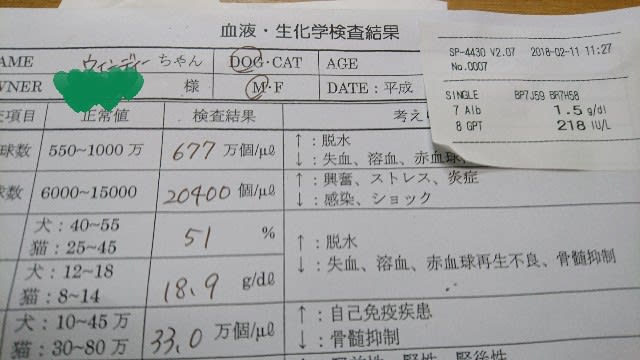 血液・生化学検査結果
NAME ウィンディー ちゃん DOG・CAT AGE
OWNER 様 M・F DATE：平成
項目 正常値 検査結果 考え
球数 550~1000万 677 万個/μℓ ↑：脱水
↓：失血、溶血、赤血球
球数 6000~15000 20400 個/μℓ ↑：興奮、ストレス、炎症
↓：感染、ショック
犬：40~55
猫：25~45
51 %
↑：脱水
↓：失血、溶血、赤血球再生不良、骨髄抑制
犬：12~18
猫：8~14
18.9 g/dℓ
犬：10~45万
猫：30~80万
33.0 万個/μℓ
↑：自己免疫疾患
↓：骨髄抑制
SP-4430 V2.07 2018-02-11 11:27
No.0007
SINGLE BP7J59 BR7H58
7 Alb 1.5 g/dl
8 GPT 218 IU/L